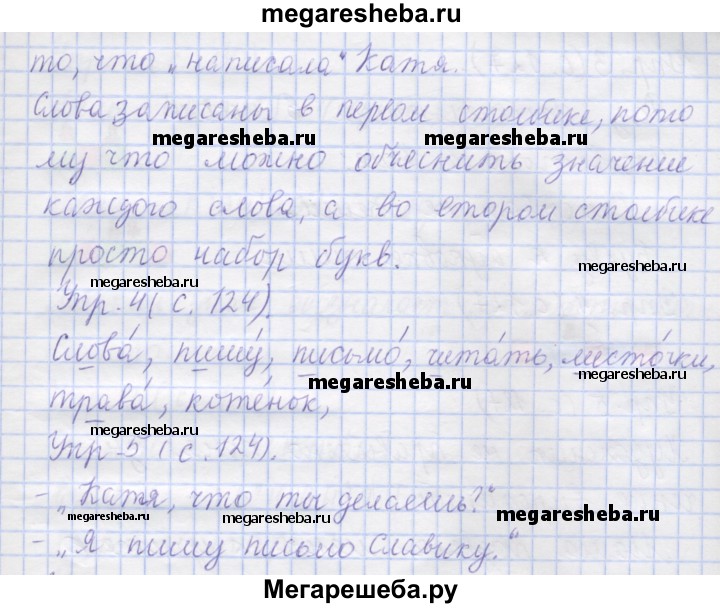 megaresheba.ru
то, что „написала“ Катя.
Слова записаны в первом столбике, пото
megaresheba.ru megaresheba.ru
му что можно объеснить значение
каждого слова, а во втором столбике
просто набор букв.
megaresheba.ru megaresheba.ru
Упр. 4 (с. 124).
Слова́, пишу́, письмо́, чита́ть, листо́чки,
megaresheba.ru megaresheba.ru
трава́, котёнок,
megaresheba.ru
Упр-5 (с. 124).
- „Катя, что ты делаешь?“
megaresheba.ru megaresheba.ru megaresheba.ru
- „Я пишу письмо Славику.“
Мегарешеба.ру